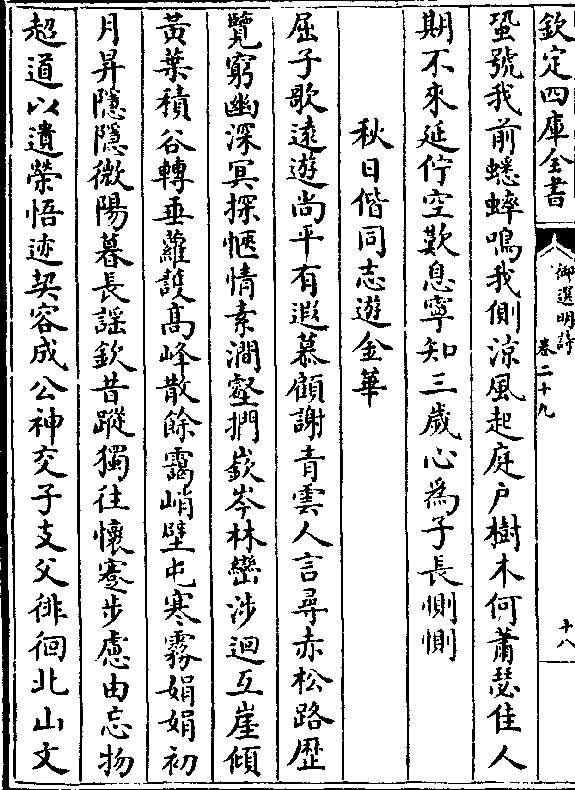 欽定四庫全書
御選明詩
卷二十九
十八
蛩號我前蟋蟀鳴我側涼風起庭户樹木何蕭瑟佳人
期不來延佇空歎息寧知三歲心為子長惻惻
秋日偕同志遊金華
屈子歌遠遊尚平有遐慕顧謝青雲人言尋赤松路歴
覽窮幽深冥探愜情素澗壑捫嶔岑林巒涉迴互崖傾
黃葉積谷轉垂蘿護高峰散餘靄峭壁屯寒霧娟娟初
月昇隱隱微陽暮長謡欽昔蹤獨往懷蹇步慮由忘物
超道以遺榮悟迹契容成公神交子支父徘徊北山文